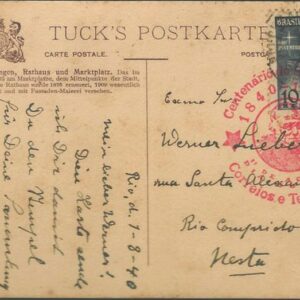 TUCK'S POSTKARTE
CARTE POSTALE.
POSTKARTE
BRASIL
gen, Rathaus und Marktplatz. Das im
am Marktplatze, dem Mittelpunkte der Stadt,
Rathaus wurde 1898 erneuert, 1900 wesentlich
und mit Fassaden-Malerei versehen.
Centenário
1840
Correios e Te
Rio, d. 1-8-40
mein lieber Werner!
Diese Karte sende
ich Dir damit
Du den Stempel
für Deine Sammlung
Exmo Snr
Werner Lieber
rua Santa
Rio Comprido
Nesta